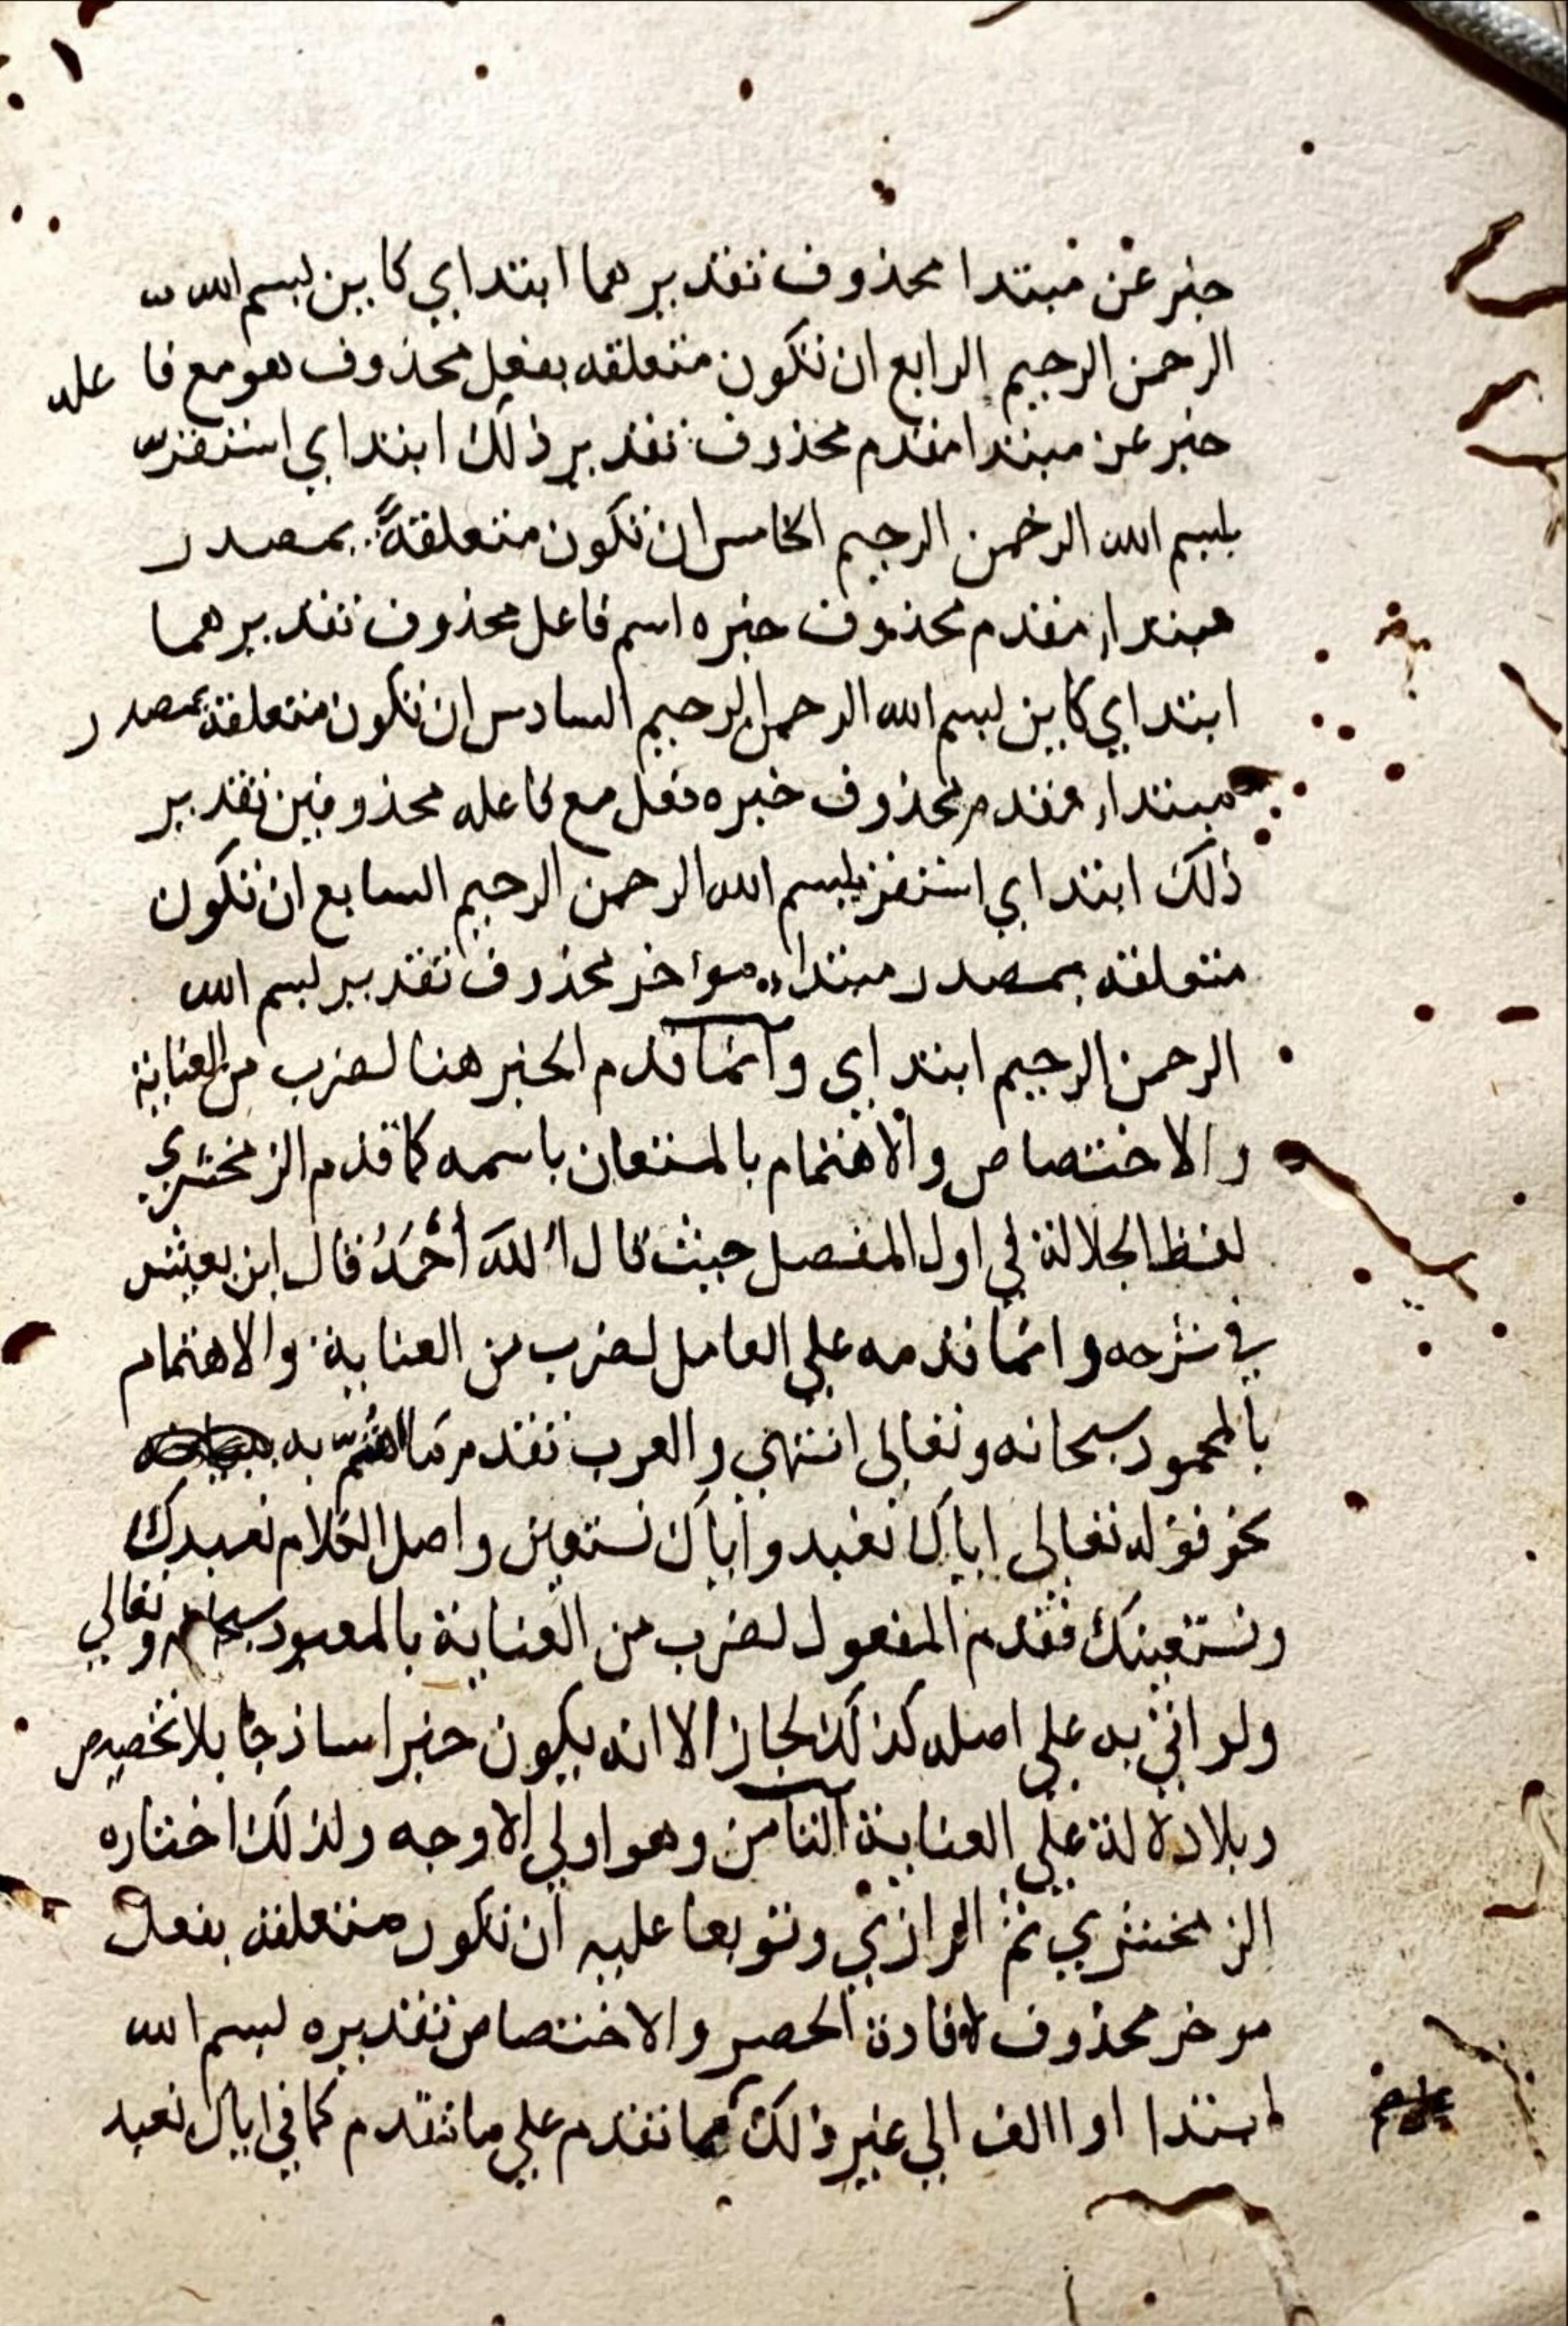 خبر عن مبتدا محذوف تقديرهما ابتداي كاين بسم الله
الرحمن الرحيم الرابع ان تكون متعلقه بفعل محذوف هو مع فاعله
خبر عن مبتدا مقدم محذوف تقدير ذلك ابتداي استقر
بسم الله الرحمن الرحيم الخامس ان تكون متعلقة بمصدر
مبتداء مقدم محذوف خبره اسم فاعل محذوف تقديرهما
ابتداي كاين بسم الله الرحمن الرحيم السادس ان تكون متعلقة بمصدر
مبتداء مقدم محذوف خبره فعل مع فاعله محذوفين تقدير
ذلك ابتداي استقر بسم الله الرحمن الرحيم السابع ان تكون
متعلقه بمصدر مبتداء مواخر محذوف تقدير بسم الله
الرحمن الرحيم ابتداي وانما قدم الخبر هنا لضرب من العناية
والاختصاص والاهتمام بالمستعان باسمه كما قدم الزمخشري
لفظ الجلالة في اول المفصل حيث قال اللهَ أَحْمَدُ قال ابن يعيش
في شرحه وانما قدمه علي العامل لضرب من العناية والاهتمام
بالمحمود سبحانه وتعالى انتهي والعرب تقدم ما اهتم به
نحو قوله تعالى اياك نعبد واياك نستعين واصل الكلام نعبدك
ونستعينك فقدم المفعول لضرب من العناية بالمعبود سبحانه وتعالي
ولو اتي به علي اصله كذلك لجاز الا انه يكون خبرا ساذجا بلا تخصيص
وبلا دلالة علي العناية الثامن وهو اولي الاوجه ولذلك اختاره
الزمخشري ثم الرازي وتوبعا عليه ان تكون متعلقه بفعل
موخر محذوف لافادة الحصر والاختصاص تقديره بسم الله
ابتدا او االف الي غير ذلك مما تقدم علي ما تقدم كما في اياك نعبد